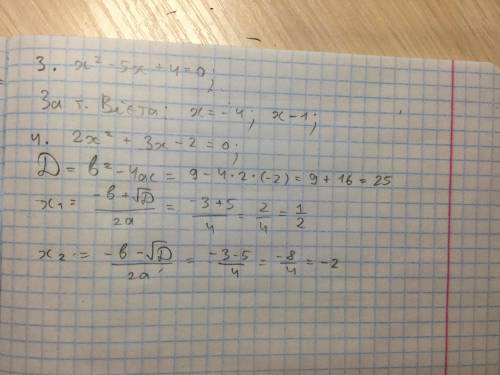 3. x² - 5x + 4 = 0;
За т. Вієта: x = -4; x - 1;
4. 2x² + 3x - 2 = 0;
D = b² - 4ac = 9 - 4 · 2 · (-2) = 9 + 16 = 25
x₁ = (-b + √D)/2a = (-3 + 5)/4 = 2/4 = 1/2
x₂ = (-b - √D)/2a = (-3 - 5)/4 = -8/4 = -2